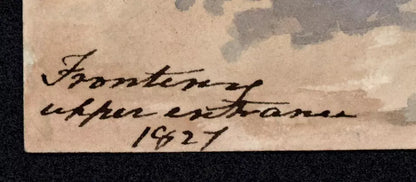 Fronteny
upper entrance
1827